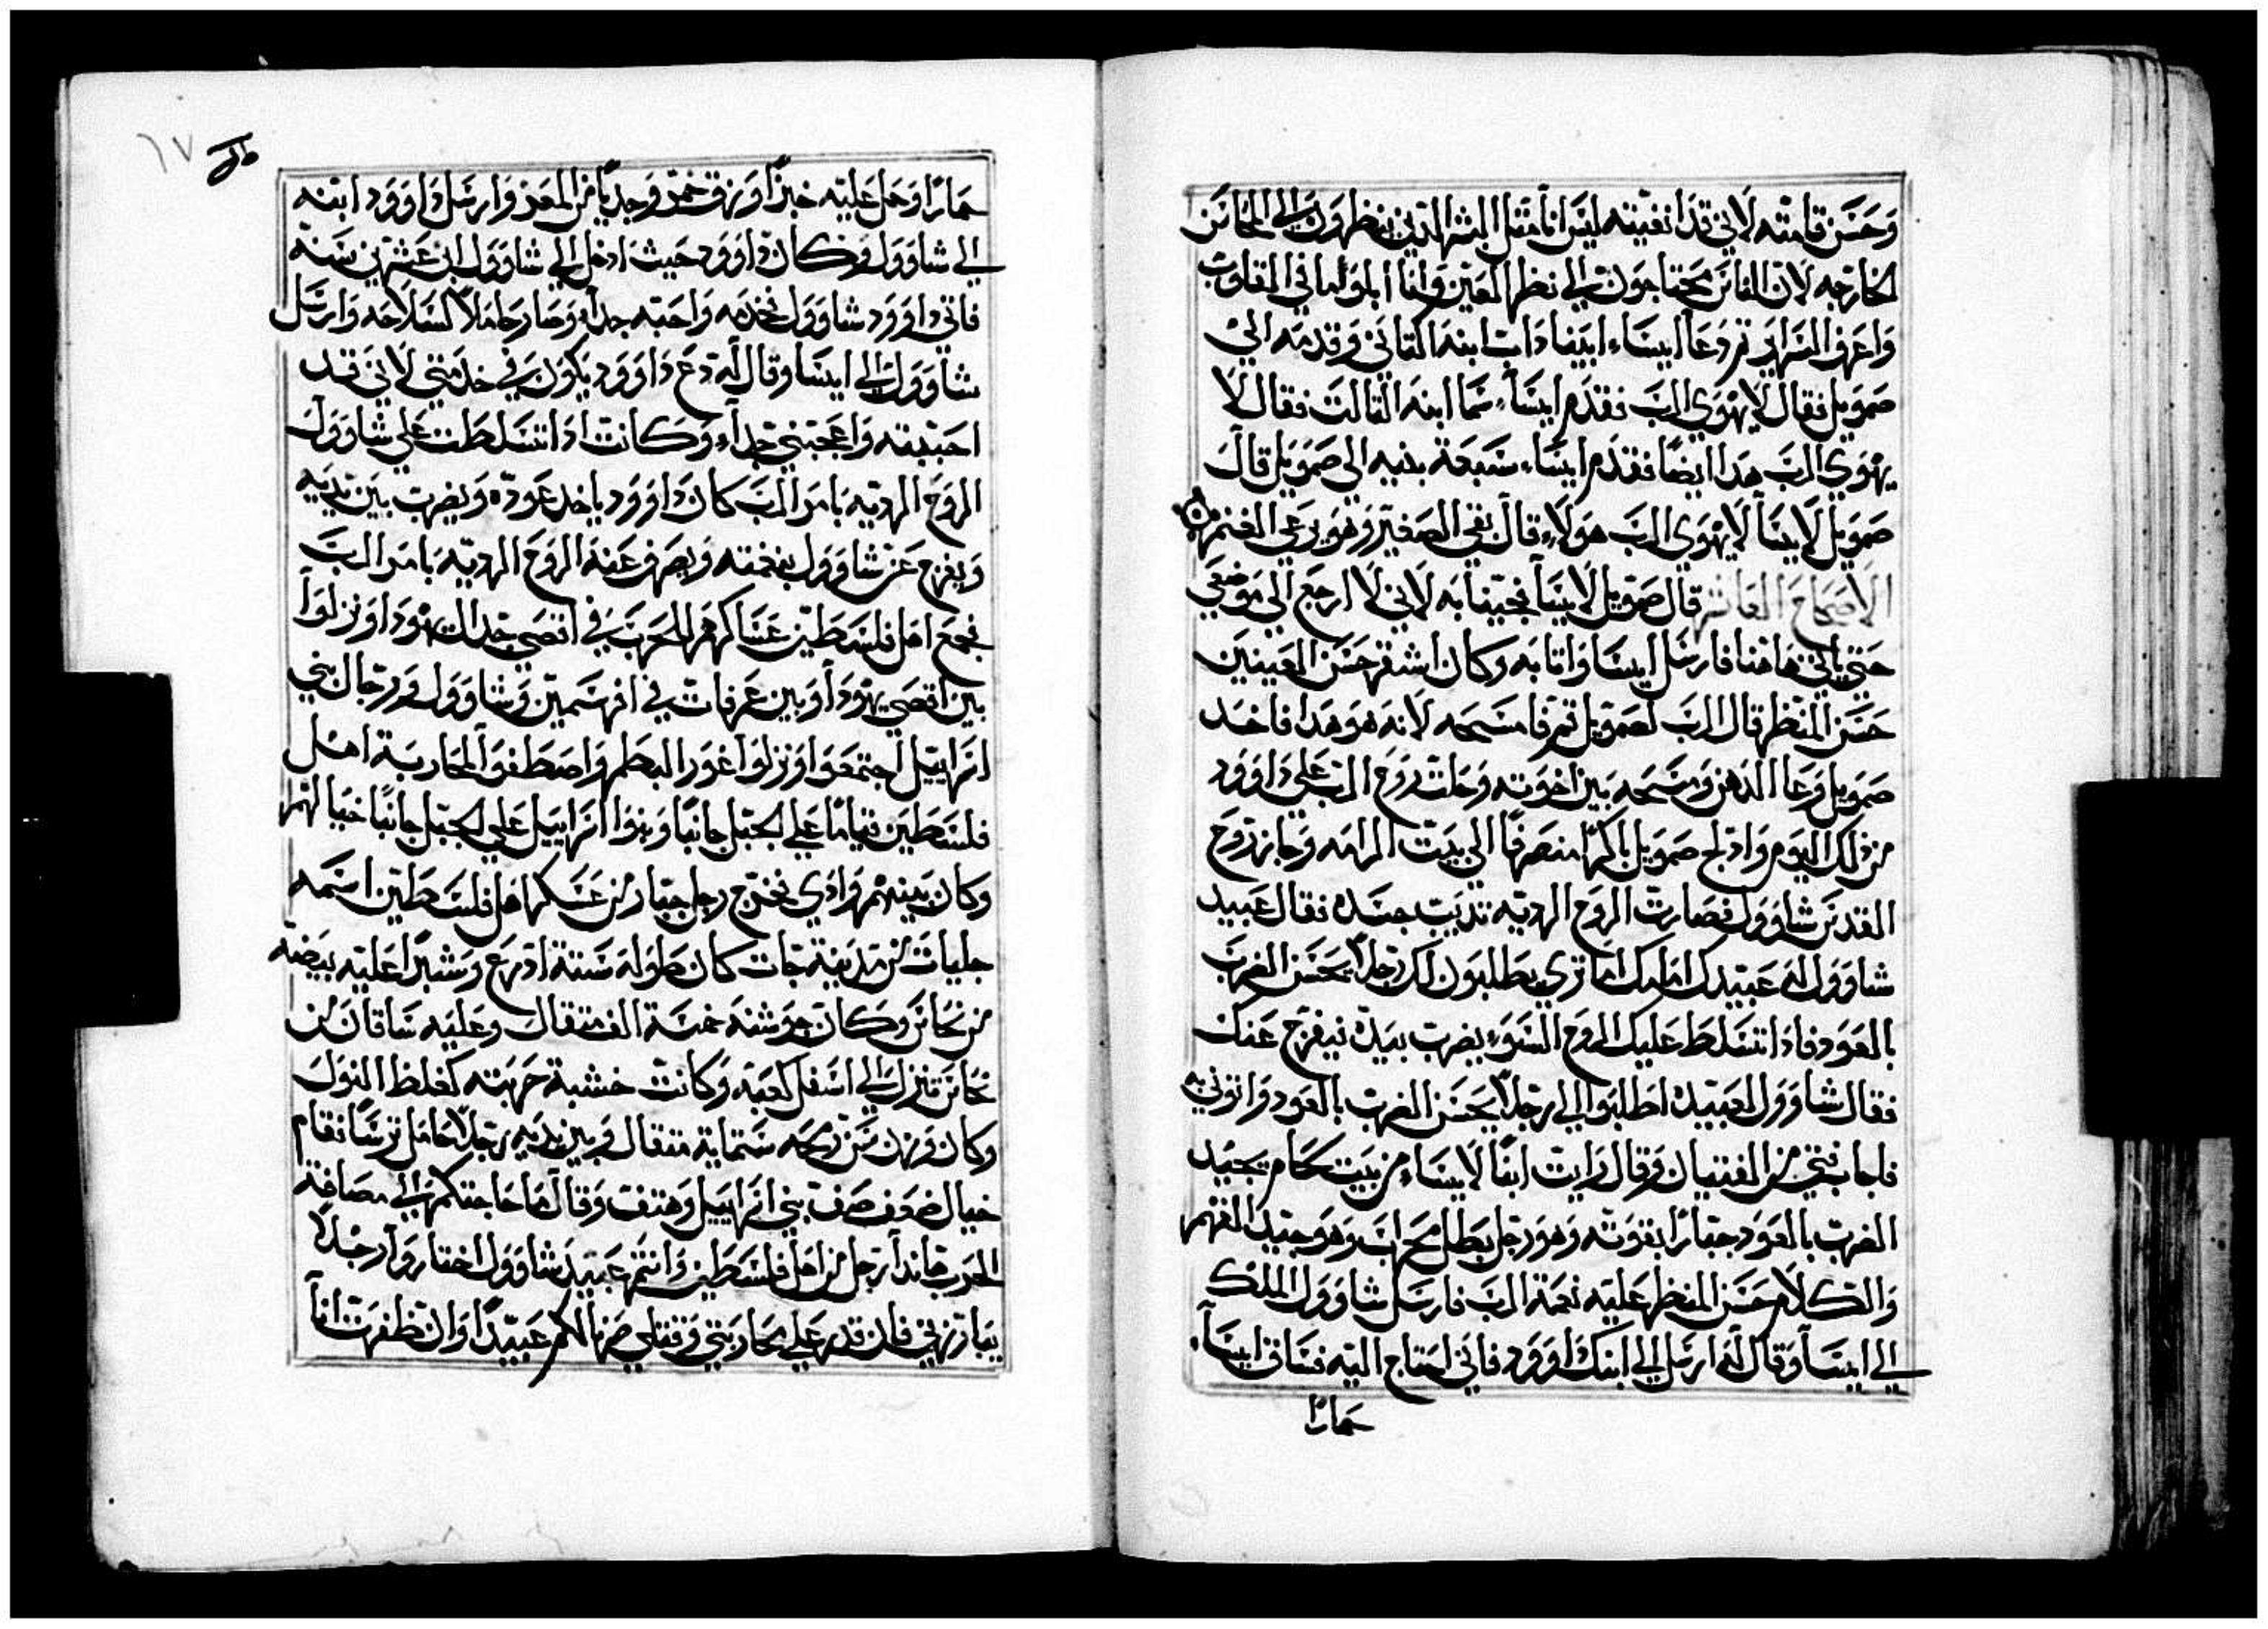 وَحَسَن قامته لاني قد انفيته ليس انا مثل البشر الدين ينظرون الي المحاسن
الخارجه لان الناس محتاجون الي نظر العين وانا ابلوا ما في القلوب
واعرف السراير ثم دعا ايساء ابيناداب ابنه الثاني وقدمه الي
صمويل فقال لا يهوي الرب فقدم ايساء سما ابنه الثالث فقال لا
يهوي الرب هدا ايضا فقدم ايساء سبعة بنيه الي صمويل قال
صمويل لايسا لا يهوي الرب هولاء قال بقي الصغير وهو يرعي الغنم
الاصحاح العاشر قال صمويل لايسا نجينا به لاني لا ارجع الي موضعي
حتي ياتي هاهنا فارسل ايسا واتا به وكان اشقر حسن العينين
حسن المنظر قال الرب لصمويل قم فامسحه لانه هو هدا فاخد
صمويل وعا الدهن ومسحه بين اخوته وحلت روح الرب علي داوود
من دلك اليوم وادلج صمويل باكرا منصرفا الي بيت الرامه وجازت روح
القدس شاوول فصارت الروح الرديه تديب جسده فقال عبيد
شاوول له عبيدك امامك اما تري يطلبون لك رجلا يحسن الضرب
بالعود فادا تسلط عليك الروح السوء يضرب بيده فيفرج عنك
فقال شاوول لعبيده اطلبوا الي رجلا يحسن الضرب بالعود واتوني به
فاجاب فتي من الفتيان وقال رايت ابنا لايساء من بيت لحام يجيد
الضرب بالعود جبارا بقوته وهو رجل بطل محراب وهو جيد الفهم
والكلام حسن المنظر عليه نعمة الرب فارسل شاوول الملك
الي ايسا وقال له ارسل الي ابنك داوود فاني احتاج اليه فساق ايسا
حمارا
حمارا وحمل عليه خبزا وزق خمر وجديا من المعز وارسل داوود ابنه
الي شاوول وكان داوود حيث ادخل الي شاوول ابن عشرين سنه
فاتي داوود شاوول فخدمه واحبه جدا وصار حاملا لسلاحه وارسل
شاوول الي ايسا وقال له دع داوود يكون في خدمتي لاني قد
احببته واعجبني جدا وكانت ادا تسلطت علي شاوول
الروح الرديه بامر الرب كان داوود ياخد عوده ويضرب بين يديه
ويفرج عن شاوول بنغمته ويصرف عنه الروح الرديه بامر الرب
فجمع اهل فلسطين عساكرهم للحرب في اقصي جدال يهودا ونزلوا
بين اقصي يهودا وبين عرفات في افرسمين وشاوول ورجال بني
اسراييل اجتمعوا ونزلوا غور البطم واصطفوا لمحاربة اهل
فلسطين قياما علي الجبل جانبا وبنوا اسراييل علي الجبل جانبا خيالهم
وكان بينهم وادي فخرج رجل جبار من عسكر اهل فلسطين اسمه
جليات من مدينة جات كان طوله ستة ادرع وشبرا عليه بيضه
من نحاس وكان جوشنه خمسة الف مثقال وعليه ساقان من
نحاس تنزل الي اسفل كعبه وكانت خشبة حربته كغلظ النول
وكان وزن سن رمحه ستماية مثقال وبين يديه رجلا حامل ترسا فقام
خيال صفوف صف بني اسراييل وهتف وقال ما حاجتكم الي مصافة
الحرب هاندا رجل من اهل فلسطين وانتم عبيد شاوول اختاروا رجلا
يبارزني فان قدر علي محاربتي وقتلي صرنا لكم عبيدا وان ظفرت انا